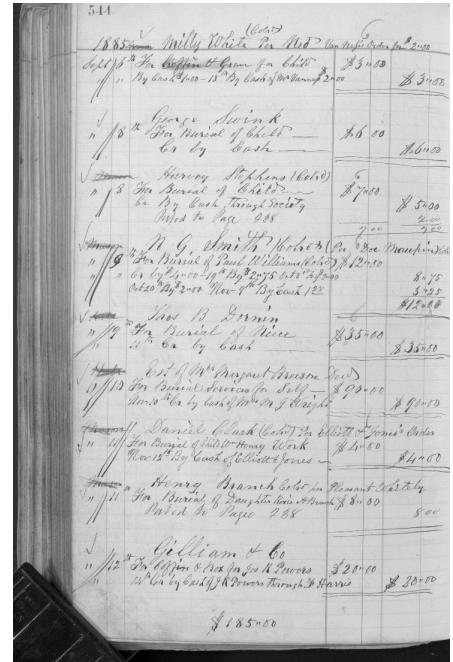 544
(Cold)
1885 Milly White Per Ned Van Ness Order for $2"00
Sept 6th For Coffin & Grave for Child $3"00
" " By Cash $1"00 - 13th By Cash of Mr Vanness $2"00 $3"00
George Swink
" 8th For Burial of Child $6"00
Cr by Cash $6"00
Harvey Stephens (Cold)
" 8 For Burial of Child $7"00
Cr By Cash through Society $5"00
Posted to Page 238 2"00
7"00 7"00
N. G. Smith (Cold) Per Geo Maupin
" 9th For Burial of Paul Williams (Cold) $12"00
" " Cr by $4"00 - 19th By $2"75 Oct 2d $2"00 8"75
Oct 20th By $2"00 Nov 9th By Cash 1 25 3"25
$12"00
Thos B Dornin
" 9th For Burial of Niece $35"00
" " 11th Cr by Cash $35"00
Est of Mrs Margaret Dec'd
" 10 For Burial Services for Self $90"00
10th Cr by Cash of Mr N J Wright $90"00
Daniel Clark (Cold) Per Elliott & Jones Order
" 11 For Burial of Child Henry Work $4"00
Nov 12th By Cash of Elliott & Jones $4"00
Henry Branch Cold per Pleasant
" 11 For Burial of Daughter Rosie A Branch $8"00
Posted to Page 238 8"00
Gilliam & Co
" 12th For Coffin & Box for Jas R Powers $20"00
" 14th Cr by Cash of J R Powers through Harris $20"00
$185"00